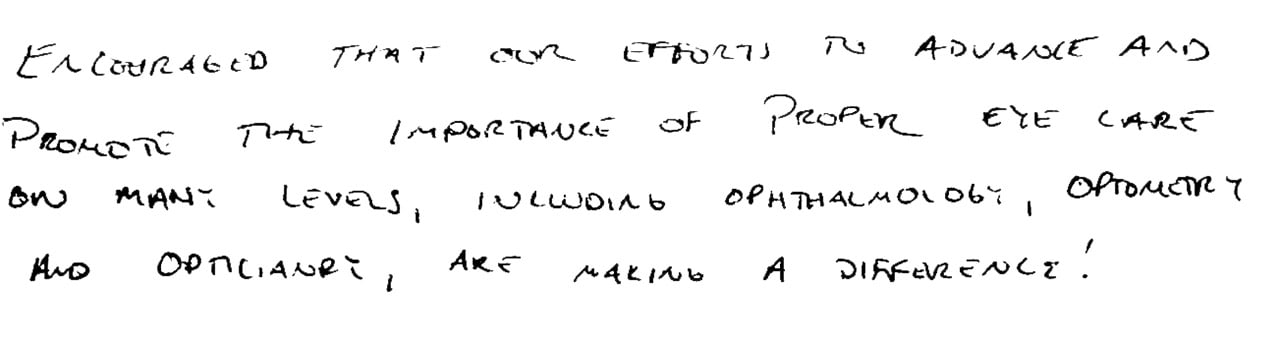 ENCOURAGED THAT OUR EFFORTS TO ADVANCE AND
PROMOTE THE IMPORTANCE OF PROPER EYE CARE
ON MANY LEVELS, INCLUDING OPHTHALMOLOGY, OPTOMETRY
AND OPTICIANRY, ARE MAKING A DIFFERENCE!